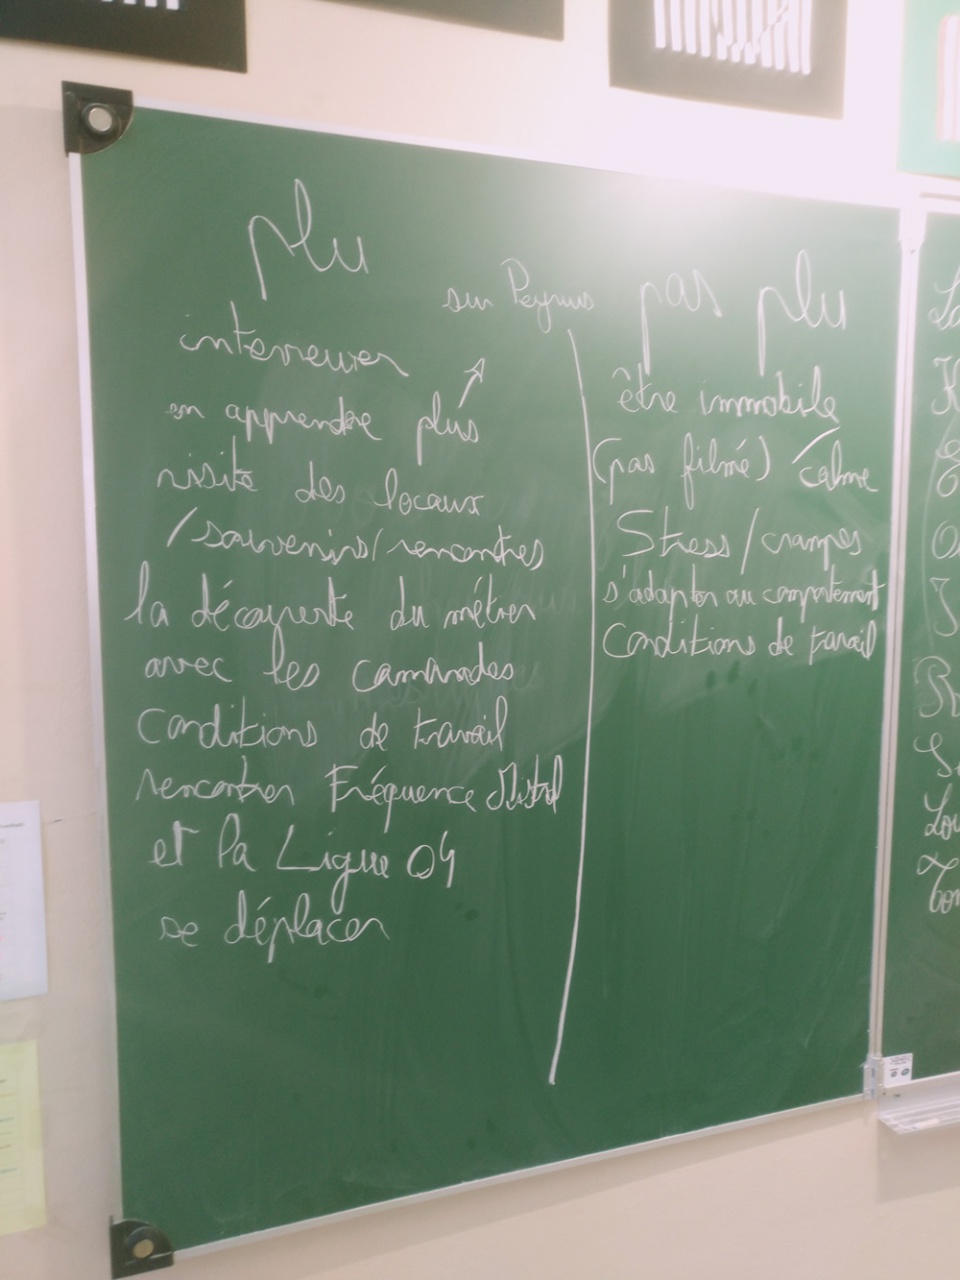 plu
sur Peyruis
interviewer
en apprendre plus
visite des locaux
/souvenirs/rencontres
la découverte du métier
avec les camarades
conditions de travail
rencontrer Fréquence Mistral
et la Ligue 04
se déplacer
pas plu
être immobile
(pas filmé) /calme
Stress/crampes
s'adapter au comportement
Conditions de travail